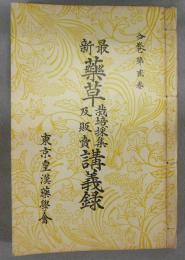 合巻第貳巻
最新
藥草栽培採集及販賣講義録
東京皇漢藥學會